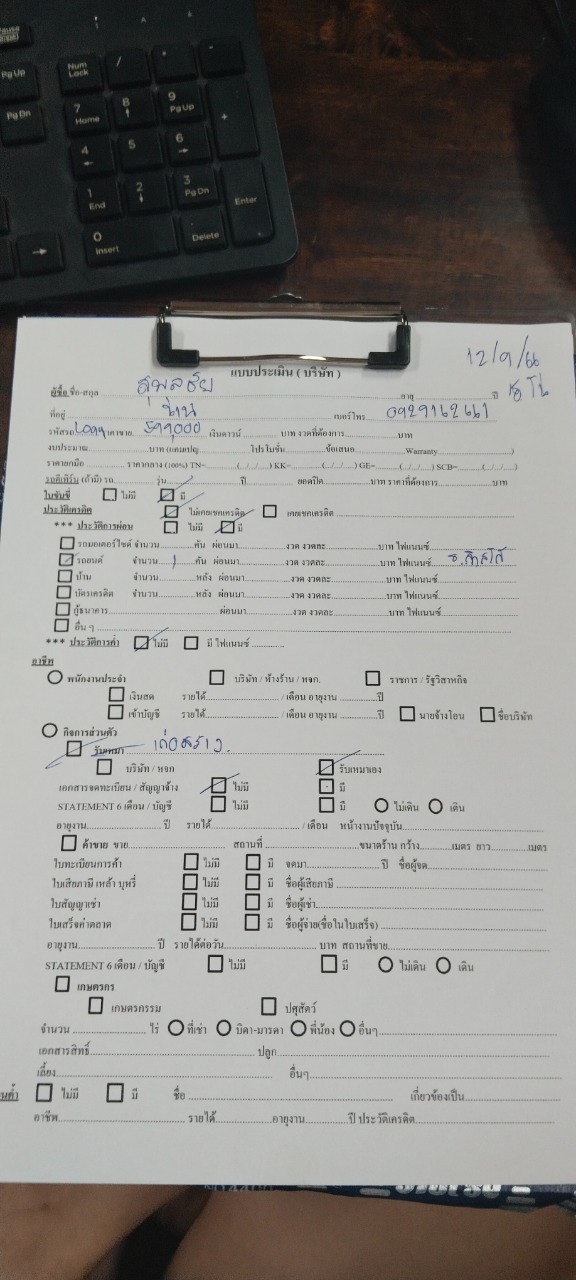 Pause
PgUp
Num Lock
/
PgDn
7 Home
8
9 PgUp
+
4
5
6
1 End
2
3 PgDn
Enter
0 Insert
Delete
12/9/66
แบบประเมิน ( บริษัท )
ผู้ซื้อ ชื่อ-สกุล สุพลชัย อายุ ปี
ที่อยู่ น่าน เบอร์โทร 0929162661
รหัสรถ ราคาขาย 599000 เงินดาวน์ บาท งวดที่ต้องการ บาท
งบประมาณ บาท โปรโมชั่น ข้อเสนอ Warranty )
ราคายกมือ ราคากลาง (100%) TN= (.../.../...) KK= (.../.../...) GE= (.../.../...) SCB= (.../.../...)
รถตีเทิร์น (ถ้ามี) รถ รุ่น ปี ยอดปิด บาท ราคาที่ต้องการ บาท
ใบขับขี่ ไม่มี มี
ประวัติเครดิต ไม่เคยเชคเครดิต เคยเชคเครดิต
*** ประวัติการผ่อน ไม่มี มี
รถมอเตอร์ไซด์ จำนวน คัน ผ่อนมา งวด งวดละ บาท ไฟแนนซ์
รถยนต์ จำนวน 1 คัน ผ่อนมา งวด งวดละ บาท ไฟแนนซ์
บ้าน จำนวน หลัง ผ่อนมา งวด งวดละ บาท ไฟแนนซ์
บัตรเครดิต จำนวน หลัง ผ่อนมา งวด งวดละ บาท ไฟแนนซ์
กู้ธนาคาร ผ่อนมา งวด งวดละ บาท ไฟแนนซ์
อื่น ๆ
*** ประวัติการค้ำ ไม่มี มี ไฟแนนซ์
อาชีพ
พนักงานประจำ บริษัท / ห้างร้าน / หจก. ราชการ / รัฐวิสาหกิจ
เงินสด รายได้ / เดือน อายุงาน ปี
เข้าบัญชี รายได้ / เดือน อายุงาน ปี นายจ้างโอน ชื่อบริษัท
กิจการส่วนตัว
รับเหมา ก่อสร้าง
บริษัท / หจก รับเหมาเอง
เอกสารจดทะเบียน / สัญญาจ้าง ไม่มี มี
STATEMENT 6 เดือน / บัญชี ไม่มี มี ไม่เดิน เดิน
อายุงาน ปี รายได้ / เดือน หน้างานปัจจุบัน
ค้าขาย ขาย สถานที่ ขนาดร้าน กว้าง เมตร ยาว เมตร
ใบทะเบียนการค้า ไม่มี มี จดมา ปี ชื่อผู้จด
ใบเสียภาษี เหล้า บุหรี่ ไม่มี มี ชื่อผู้เสียภาษี
ใบสัญญาเช่า ไม่มี มี ชื่อผู้เช่า
ใบเสร็จค่าตลาด ไม่มี มี ชื่อผู้จ่าย(ชื่อในใบเสร็จ)
อายุงาน ปี รายได้ต่อวัน บาท สถานที่ขาย
STATEMENT 6 เดือน / บัญชี ไม่มี มี ไม่เดิน เดิน
เกษตรกร
เกษตรกรรม ปศุสัตว์
จำนวน ไร่ ที่เช่า บิดา-มารดา พี่น้อง อื่นๆ
เอกสารสิทธิ์ ปลูก
เลี้ยง อื่นๆ
ไม่มี มี ชื่อ เกี่ยวข้องเป็น
อาชีพ รายได้ อายุงาน ปี ประวัติเครดิต